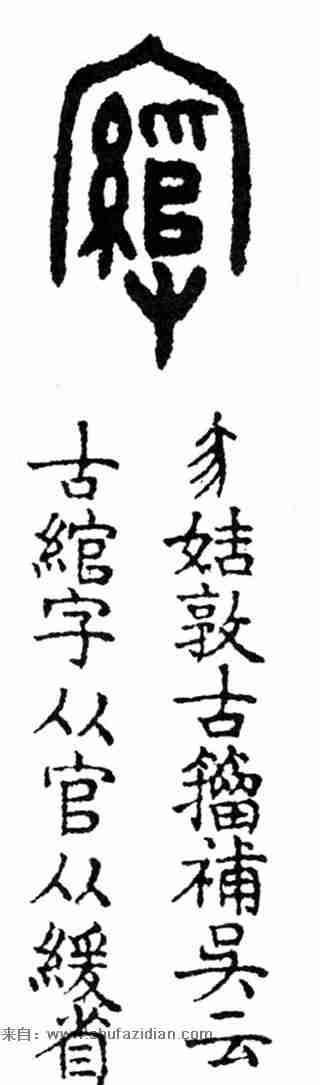 姞敦古籀補吳云
古綰字从官从緩省
来自：www.shufazidian.com